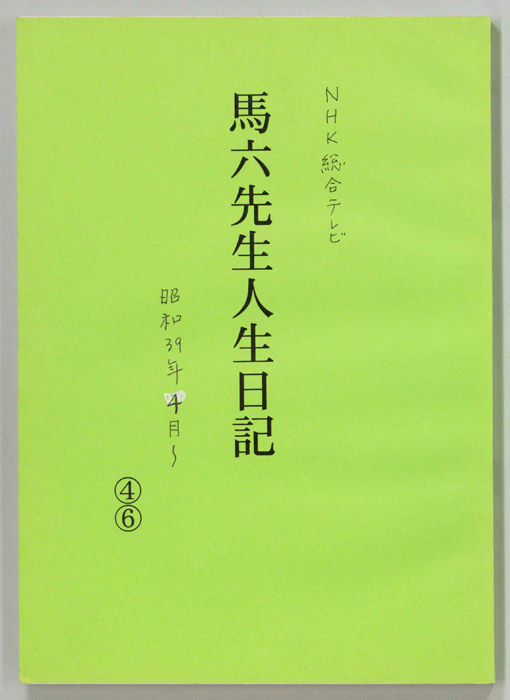 NHK総合テレビ
馬六先生人生日記
昭和39年4月~
④
⑥